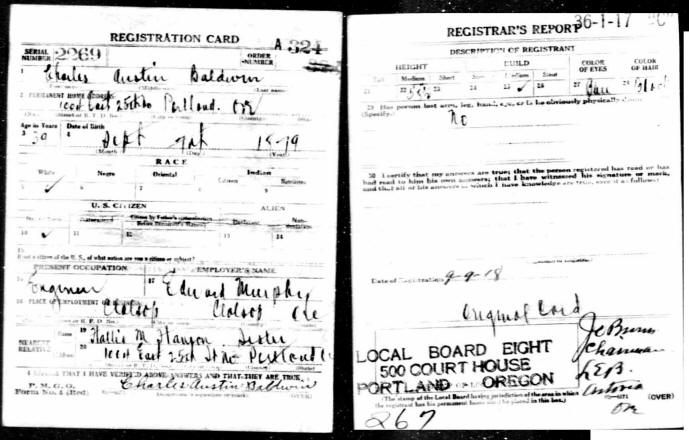 REGISTRATION CARD
SERIAL NUMBER 2269 ORDER NUMBER A 324
1 Charles Austin Baldwin
2 PERMANENT HOME ADDRESS:
East 25th No Portland. Ore
Age in Years Date of Birth
3 39 4 Sept 1879
(Month) (Day) (Year)
RACE
White Negro Oriental Indian
5 ✓ 6 7 8 9
Citizen
U. S. CITIZEN ALIEN
10 ✓ 11 12 13 14
15
If not a citizen of the U. S., of what nation are you a citizen or subject?
PRESENT OCCUPATION EMPLOYER'S NAME
16 Engineer 17 Edward Murphy
18 PLACE OF EMPLOYMENT
Clatsop Clatsop Ore
NEAREST RELATIVE
Name 19 Hallie M Sister
20 East 25th St No Portland
I AFFIRM THAT I HAVE VERIFIED ABOVE ANSWERS AND THAT THEY ARE TRUE.
P. M. G. O.
Form No. 1 (Red) Charles Austin Baldwin (OVER)
36-1-17 "C"
REGISTRAR'S REPORT
DESCRIPTION OF REGISTRANT
HEIGHT BUILD COLOR OF EYES COLOR OF HAIR
Tall Medium Short Slender Medium Stout
21 22 23 24 25 ✓ 26 27 28 Black
29 Has person lost arm, leg, hand, eye, or is he obviously physically
(Specify.) No
30 I certify that my answers are true; that the person registered has read or has
had read to him his own answers; that I have witnessed his signature or mark,
and that all of his answers of which I have knowledge are true, except as follows:
Date of Registration 9-9-18
Original Card
LOCAL BOARD EIGHT
500 COURT HOUSE
PORTLAND OREGON
Chairman
L.E.B.
Astoria
Ore
(The stamp of the Local Board having jurisdiction of the area in which
the registrant has his permanent home shall be placed in this box.)
(OVER)
267